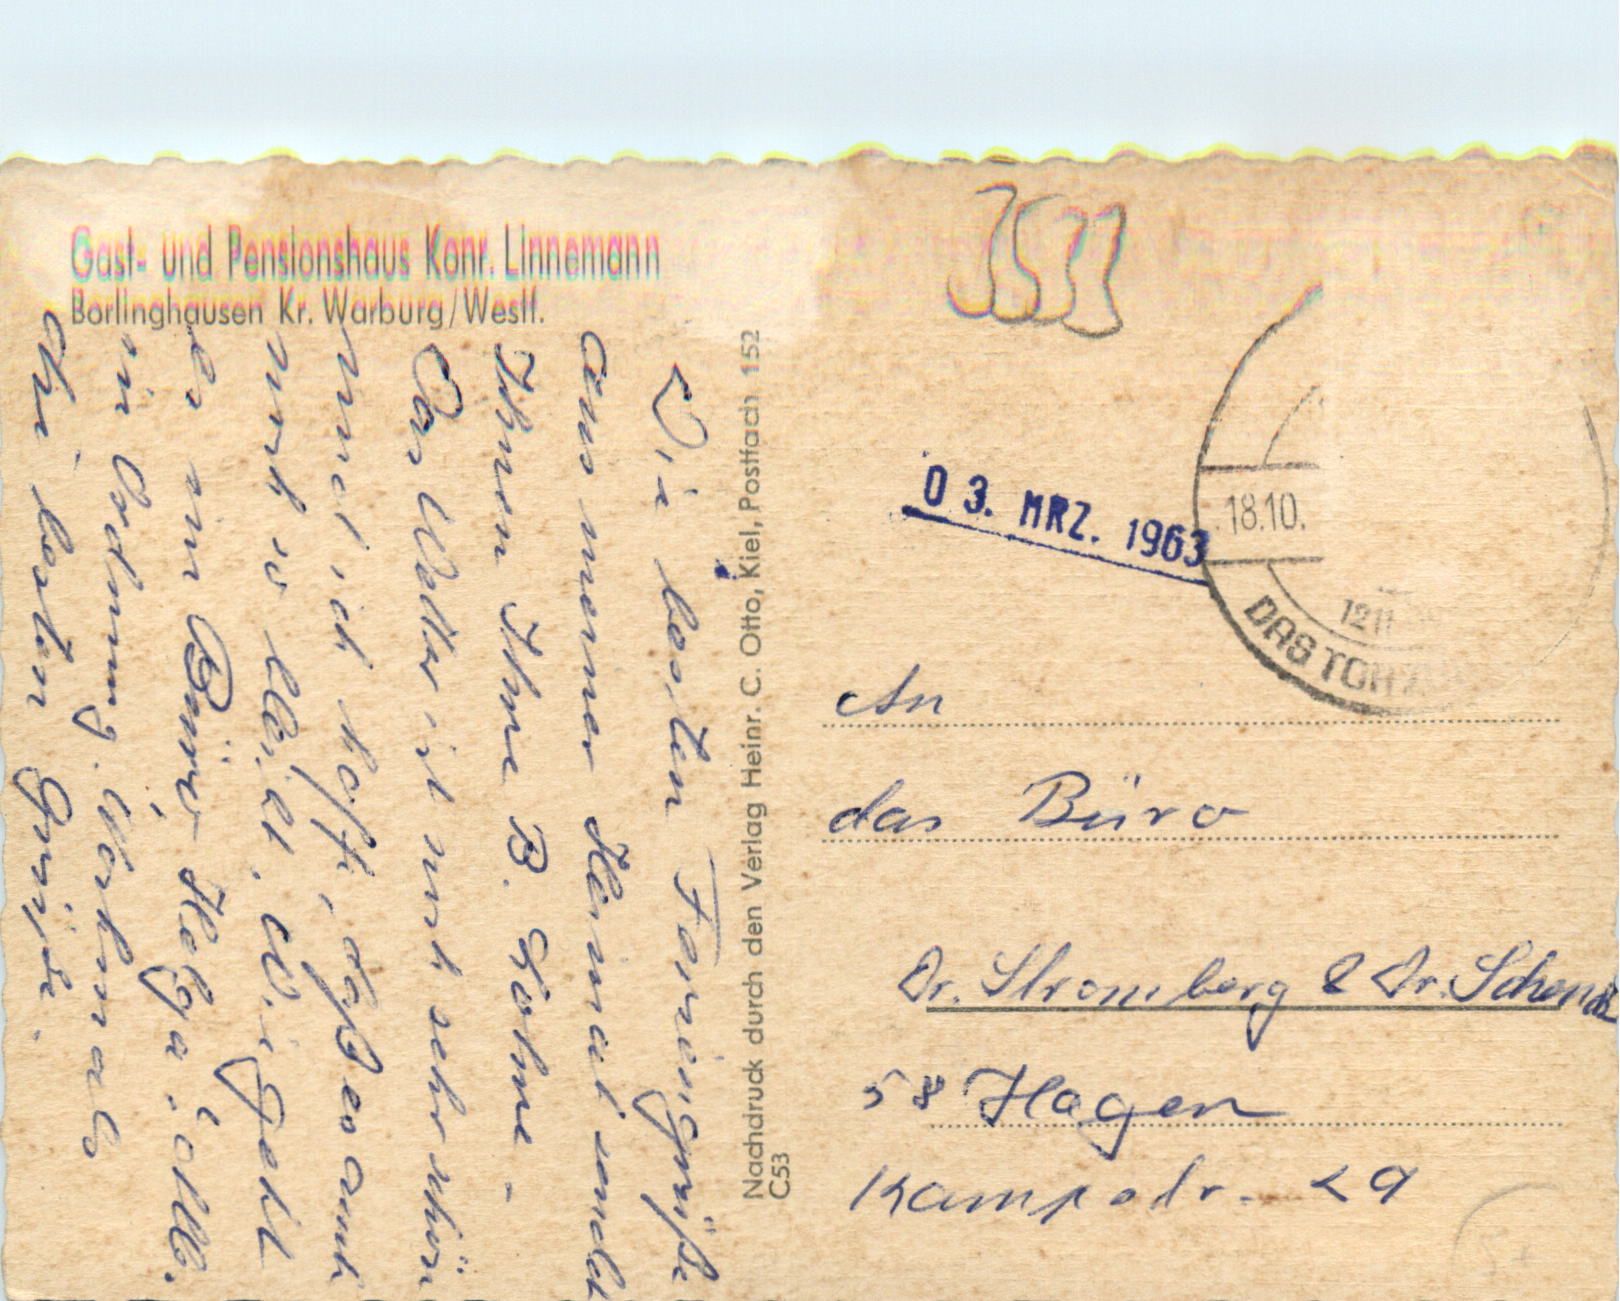 Gast- und Pensionshaus Konr. Linnemann
Borlinghausen Kr. Warburg/Westf.
Die besten Feriengrüße
aus meiner Heimat sendet
Ihnen Ihre B. Göhre.-
Das Wetter ist noch sehr schön
und ich hoffe, daß es auch
noch so bleibt. Wie geht
es im Büro Helga? Alles
in Ordnung. Nochmals
die besten Grüße.
Nachdruck durch den Verlag Heinr. C. Otto, Kiel, Postfach 152
C53
03. MRZ. 1963
18.10.
1211
DAS TOR
An
das Büro
Dr. Stromberg & Dr. Schenck
58 Hagen
Kampstr. 29